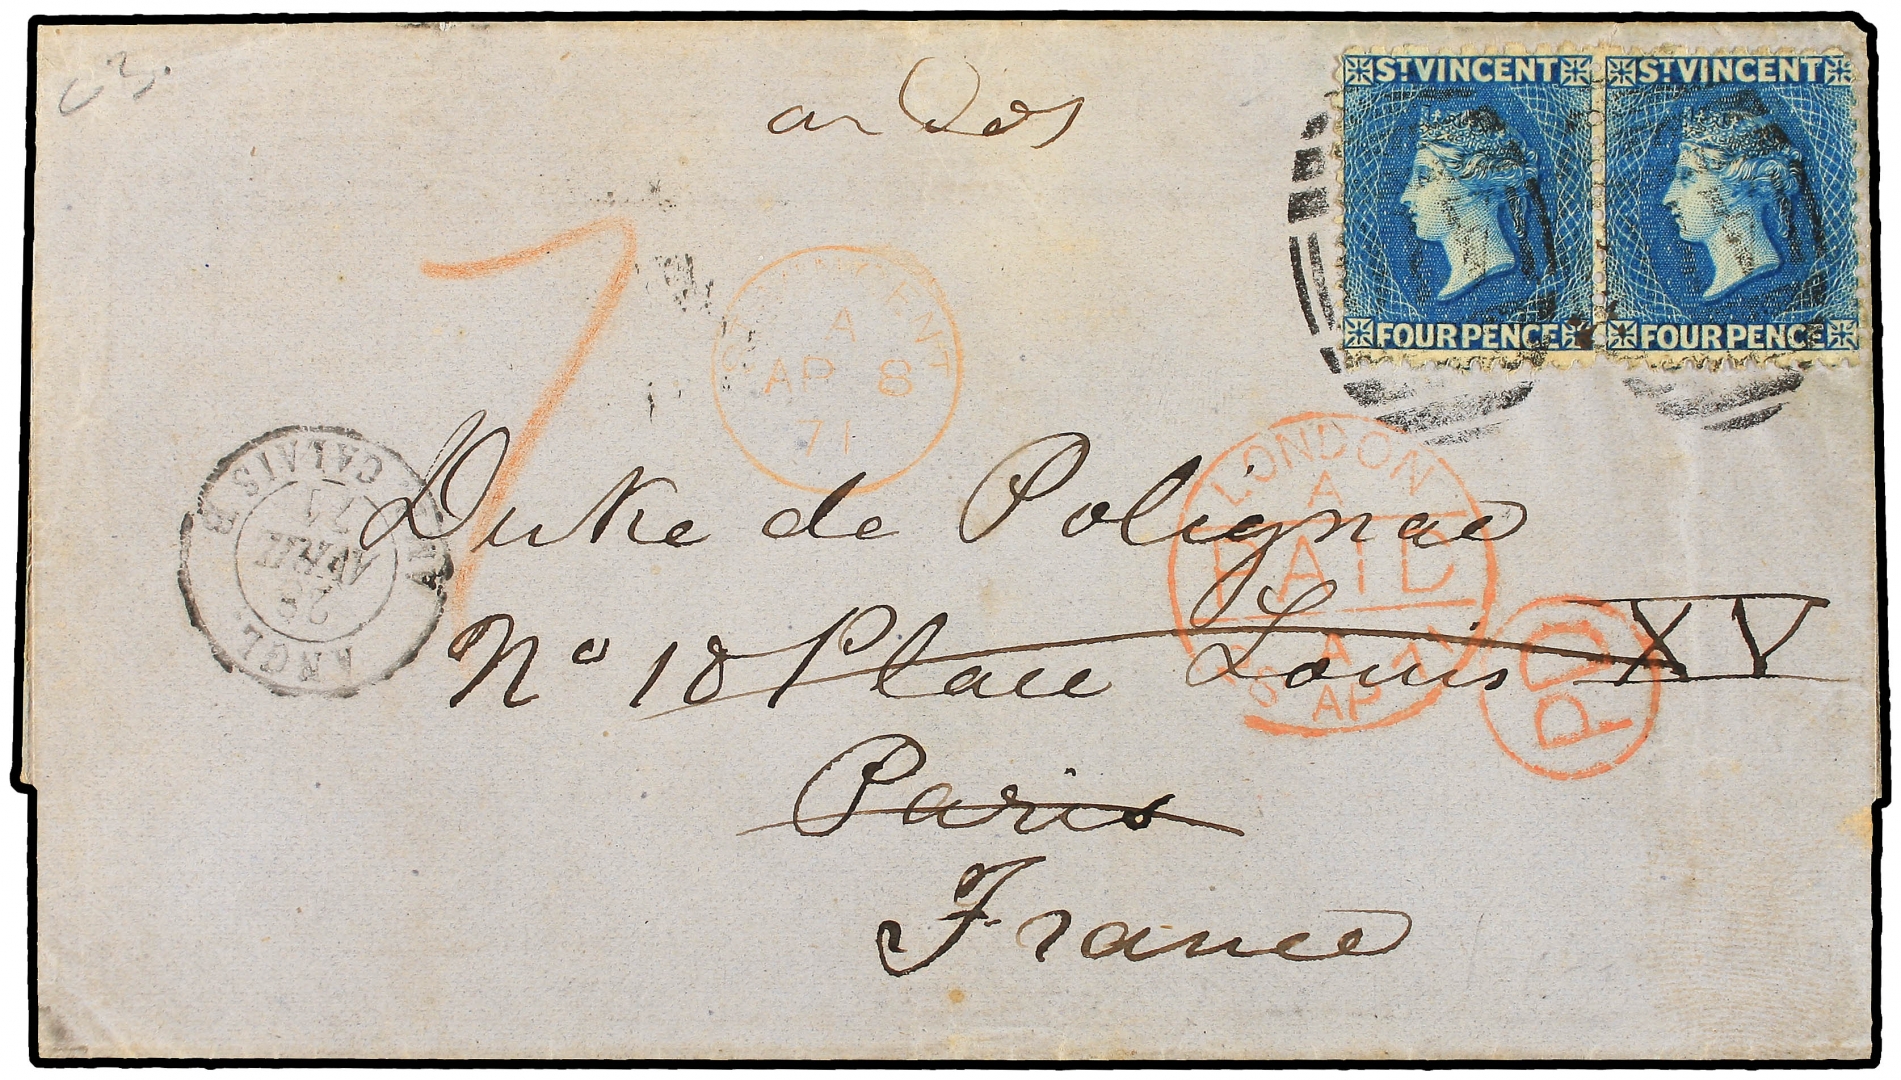 ST VINCENT
FOUR PENCE
ST VINCENT
FOUR PENCE
A
AP 8
71
LONDON
A
PAID
AP
PD
ANGL.
CALAIS B
AVRIL
71
7
Duke de Polignac
No 18 Place Louis XV
Paris
France